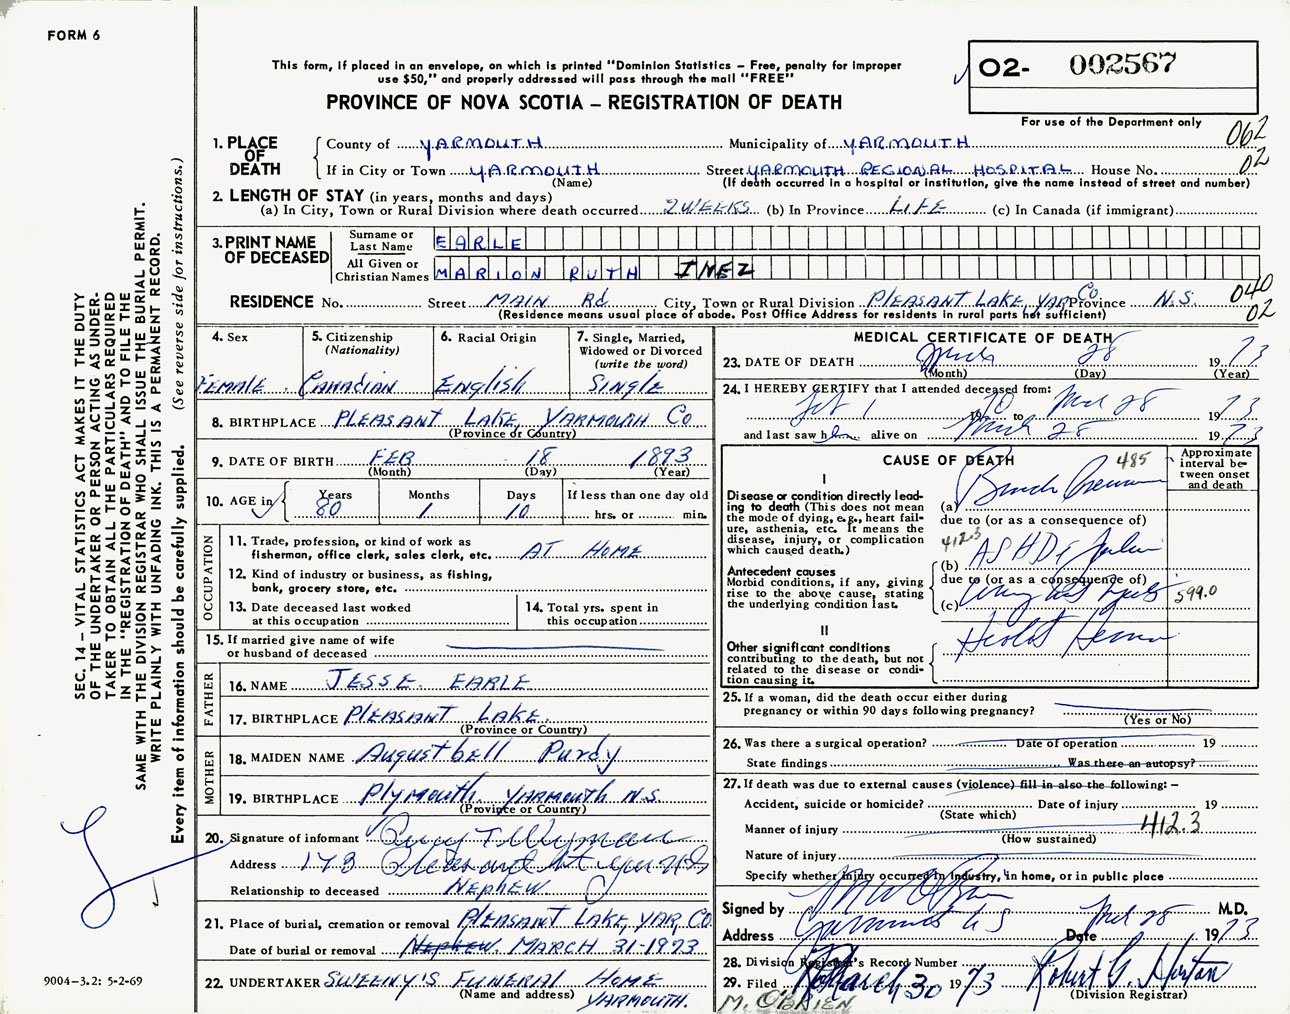 FORM 6
This form, if placed in an envelope, on which is printed "Dominion Statistics – Free, penalty for improper
use $50," and properly addressed will pass through the mail "FREE"
PROVINCE OF NOVA SCOTIA – REGISTRATION OF DEATH
O2- 002567
For use of the Department only
062
02
1. PLACE OF DEATH
County of YARMOUTH Municipality of YARMOUTH
If in City or Town YARMOUTH Street YARMOUTH REGIONAL HOSPITAL House No.
(Name) (If death occurred in a hospital or institution, give the name instead of street and number)
2. LENGTH OF STAY (in years, months and days)
(a) In City, Town or Rural Division where death occurred 2 WEEKS (b) In Province LIFE (c) In Canada (if immigrant)
3. PRINT NAME OF DECEASED
Surname or Last Name EARLE
All Given or Christian Names MARION RUTH INEZ
040
02
RESIDENCE No. Street MAIN Rd City, Town or Rural Division PLEASANT LAKE, YAR Co. Province N.S.
(Residence means usual place of abode. Post Office Address for residents in rural parts not sufficient)
4. Sex FEMALE
5. Citizenship (Nationality) CANADIAN
6. Racial Origin ENGLISH
7. Single, Married, Widowed or Divorced (write the word) SINGLE
8. BIRTHPLACE PLEASANT LAKE, YARMOUTH Co
(Province or Country)
9. DATE OF BIRTH FEB 18 1893
(Month) (Day) (Year)
10. AGE in Years 80 Months 1 Days 10 If less than one day old hrs. or min.
OCCUPATION
11. Trade, profession, or kind of work as fisherman, office clerk, sales clerk, etc. AT HOME
12. Kind of industry or business, as fishing, bank, grocery store, etc.
13. Date deceased last worked at this occupation
14. Total yrs. spent in this occupation
15. If married give name of wife or husband of deceased
FATHER
16. NAME JESSE EARLE
17. BIRTHPLACE PLEASANT LAKE.
(Province or Country)
MOTHER
18. MAIDEN NAME Augustbell Purdy
19. BIRTHPLACE Plymouth, YARMOUTH N.S.
(Province or Country)
20. Signature of informant
Address
Relationship to deceased NEPHEW
21. Place of burial, cremation or removal PLEASANT LAKE, YAR, CO.
Date of burial or removal NEPHEW. MARCH 31-1973
22. UNDERTAKER SWEENY'S FUNERAL HOME
(Name and address) YARMOUTH.
MEDICAL CERTIFICATE OF DEATH
23. DATE OF DEATH March 28 1973
(Month) (Day) (Year)
24. I HEREBY CERTIFY that I attended deceased from:
1 1970 to Mch 28 1973
and last saw her alive on March 28 1973
CAUSE OF DEATH
Approximate interval between onset and death
I
Disease or condition directly leading to death (This does not mean the mode of dying, e.g., heart failure, asthenia, etc. It means the disease, injury, or complication which caused death.)
485
(a)
due to (or as a consequence of)
412.3
(b) ASHD
Antecedent causes
Morbid conditions, if any, giving rise to the above cause, stating the underlying condition last.
due to (or as a consequence of)
(c)
599.0
II
Other significant conditions contributing to the death, but not related to the disease or condition causing it.
25. If a woman, did the death occur either during pregnancy or within 90 days following pregnancy?
(Yes or No)
26. Was there a surgical operation? Date of operation 19
State findings Was there an autopsy?
27. If death was due to external causes (violence) fill in also the following: –
Accident, suicide or homicide? Date of injury 19
(State which)
Manner of injury 412.3
(How sustained)
Nature of injury
Specify whether injury occurred in industry, in home, or in public place
Signed by M.D.
Address Yarmouth N S Date Mch 28 1973
28. Division Registrar's Record Number
29. Filed March 30 1973 Robert G. Hinton
(Division Registrar)
M. O'BRIEN
SEC. 14 – VITAL STATISTICS ACT MAKES IT THE DUTY
OF THE UNDERTAKER OR PERSON ACTING AS UNDER-
TAKER TO OBTAIN ALL THE PARTICULARS REQUIRED
IN THE "REGISTRATION OF DEATH" AND TO FILE THE
SAME WITH THE DIVISION REGISTRAR WHO SHALL ISSUE THE BURIAL PERMIT.
WRITE PLAINLY WITH UNFADING INK. THIS IS A PERMANENT RECORD.
Every item of information should be carefully supplied. (See reverse side for instructions.)
9004–3.2: 5-2-69